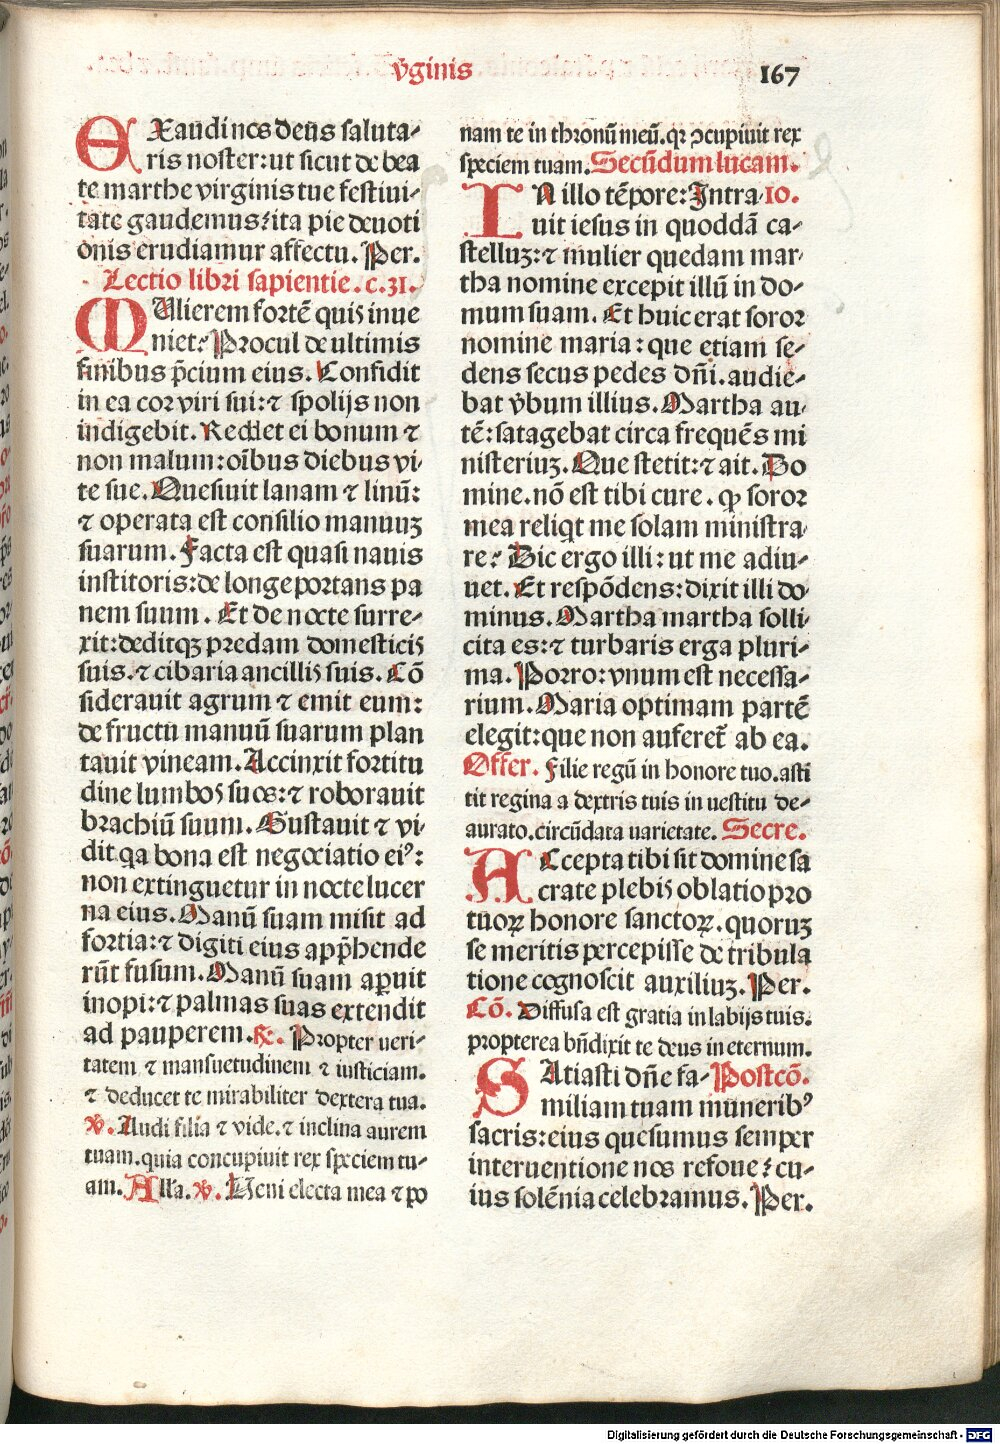 v̄ginis
167
EXaudi nos deus saluta-
ris noster: ut sicut de bea
te marthe virginis tue festiui-
tate gaudemus: ita pie deuoti
onis erudiamur affectu. Per.
Lectio libri sapientie. c. 31.
MUlierem fortē quis inue
niet? Procul de ultimis
finibus p̄cium eius. Confidit
in ea cor viri sui: ⁊ spolijs non
indigebit. Reddet ei bonum ⁊
non malum: oībus diebus vi-
te sue. Quesiuit lanam ⁊ linū:
⁊ operata est consilio manuuꝫ
suarum. Facta est quasi nauis
institoris: de longe portans pa
nem suum. Et de nocte surre-
xit: deditqꝫ predam domesticis
suis. ⁊ cibaria ancillis suis. Cō
siderauit agrum ⁊ emit eum:
de fructu manuū suarum plan
tauit vineam. Accinxit fortitu
dine lumbos suos: ⁊ roborauit
brachiū suum. Gustauit ⁊ vi-
dit qa bona est negociatio eiꝰ:
non extinguetur in nocte lucer
na eius. Manū suam misit ad
fortia: ⁊ digiti eius app̄hende
rūt fusum. Manū suam aꝑuit
inopi: ⁊ palmas suas extendit
ad pauperem. ℟. Propter ueri-
tatem ⁊ mansuetudinem ⁊ iusticiam.
⁊ deducet te mirabiliter dextera tua.
℣. Audi filia ⁊ vide. ⁊ inclina aurem
tuam. quia concupiuit rex speciem tu-
am. Alľa. ℣. Ueni electa mea ⁊ po
nam te in thronū meū. qꝛ ꝯcupiuit rex
speciem tuam. Secūdum lucam.
IN illo tēpore: Intra- 10.
uit iesus in quoddā ca-
stelluꝫ: ⁊ mulier quedam mar-
tha nomine excepit illū in do-
mum suam. Et huic erat soror
nomine maria: que etiam se-
dens secus pedes dn̄i. audie-
bat v̄bum illius. Martha au-
tē: satagebat circa frequēs mi
nisteriuꝫ. Que stetit: ⁊ ait. Do
mine. nō est tibi cure. ꝙ soror
mea reliqt me solam ministra-
re? Dic ergo illi: ut me adiu-
uet. Et respōdens: dixit illi do-
minus. Martha martha solli-
cita es: ⁊ turbaris erga pluri-
ma. Porro: vnum est necessa-
rium. Maria optimam partē
elegit: que non auferet̄ ab ea.
Offer. Filie regū in honore tuo. asti
tit regina a dextris tuis in uestitu de-
aurato. circūdata uarietate. Secre.
ACcepta tibi sit domine sa
crate plebis oblatio pro
tuoꝝ honore sanctoꝝ. quoruꝫ
se meritis percepisse de tribula
tione cognoscit auxiliuꝫ. Per.
Cō. Diffusa est gratia in labijs tuis.
propterea bn̄dixit te deus in eternum.
SAtiasti dn̄e fa- Postcō.
miliam tuam muneribꝰ
sacris: eius quesumus semper
interuentione nos refoue: cu-
ius solēnia celebramus. Per.
Digitalisierung gefördert durch die Deutsche Forschungsgemeinschaft - DFG